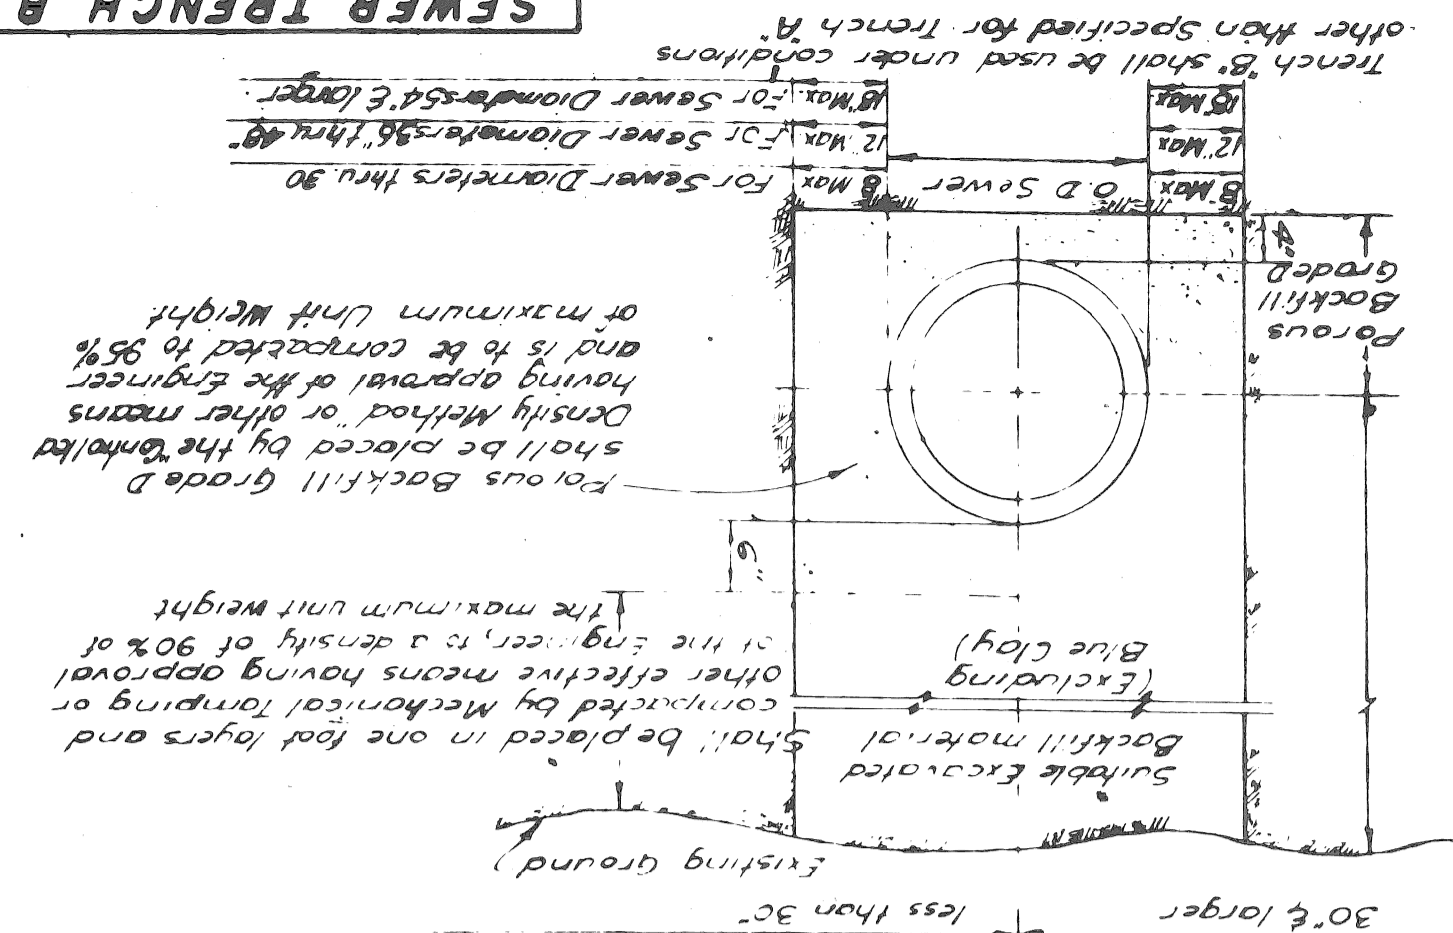 30" & larger
less than 30"
Existing Ground
Suitable Excavated
Backfill material
(Excluding
Blue Clay)
Shall be placed in one foot layers and
compacted by Mechanical Tamping or
other effective means having approval
of the Engineer, to a density of 90% of
the maximum unit weight
6"
Porous Backfill Grade D
shall be placed by the "Controlled
Density Method" or other means
having approval of the Engineer
and is to be compacted to 95%
of maximum Unit Weight
Porous
Backfill
Grade D
4"
8" Max
O.D Sewer
8 Max
For Sewer Diameters thru 30
12" Max
12" Max
For Sewer Diameters 36" thru 48"
18" Max
18" Max.
For Sewer Diameters 54" & larger
Trench "B" shall be used under conditions
other than Specified for Trench "A"
SEWER TRENCH B